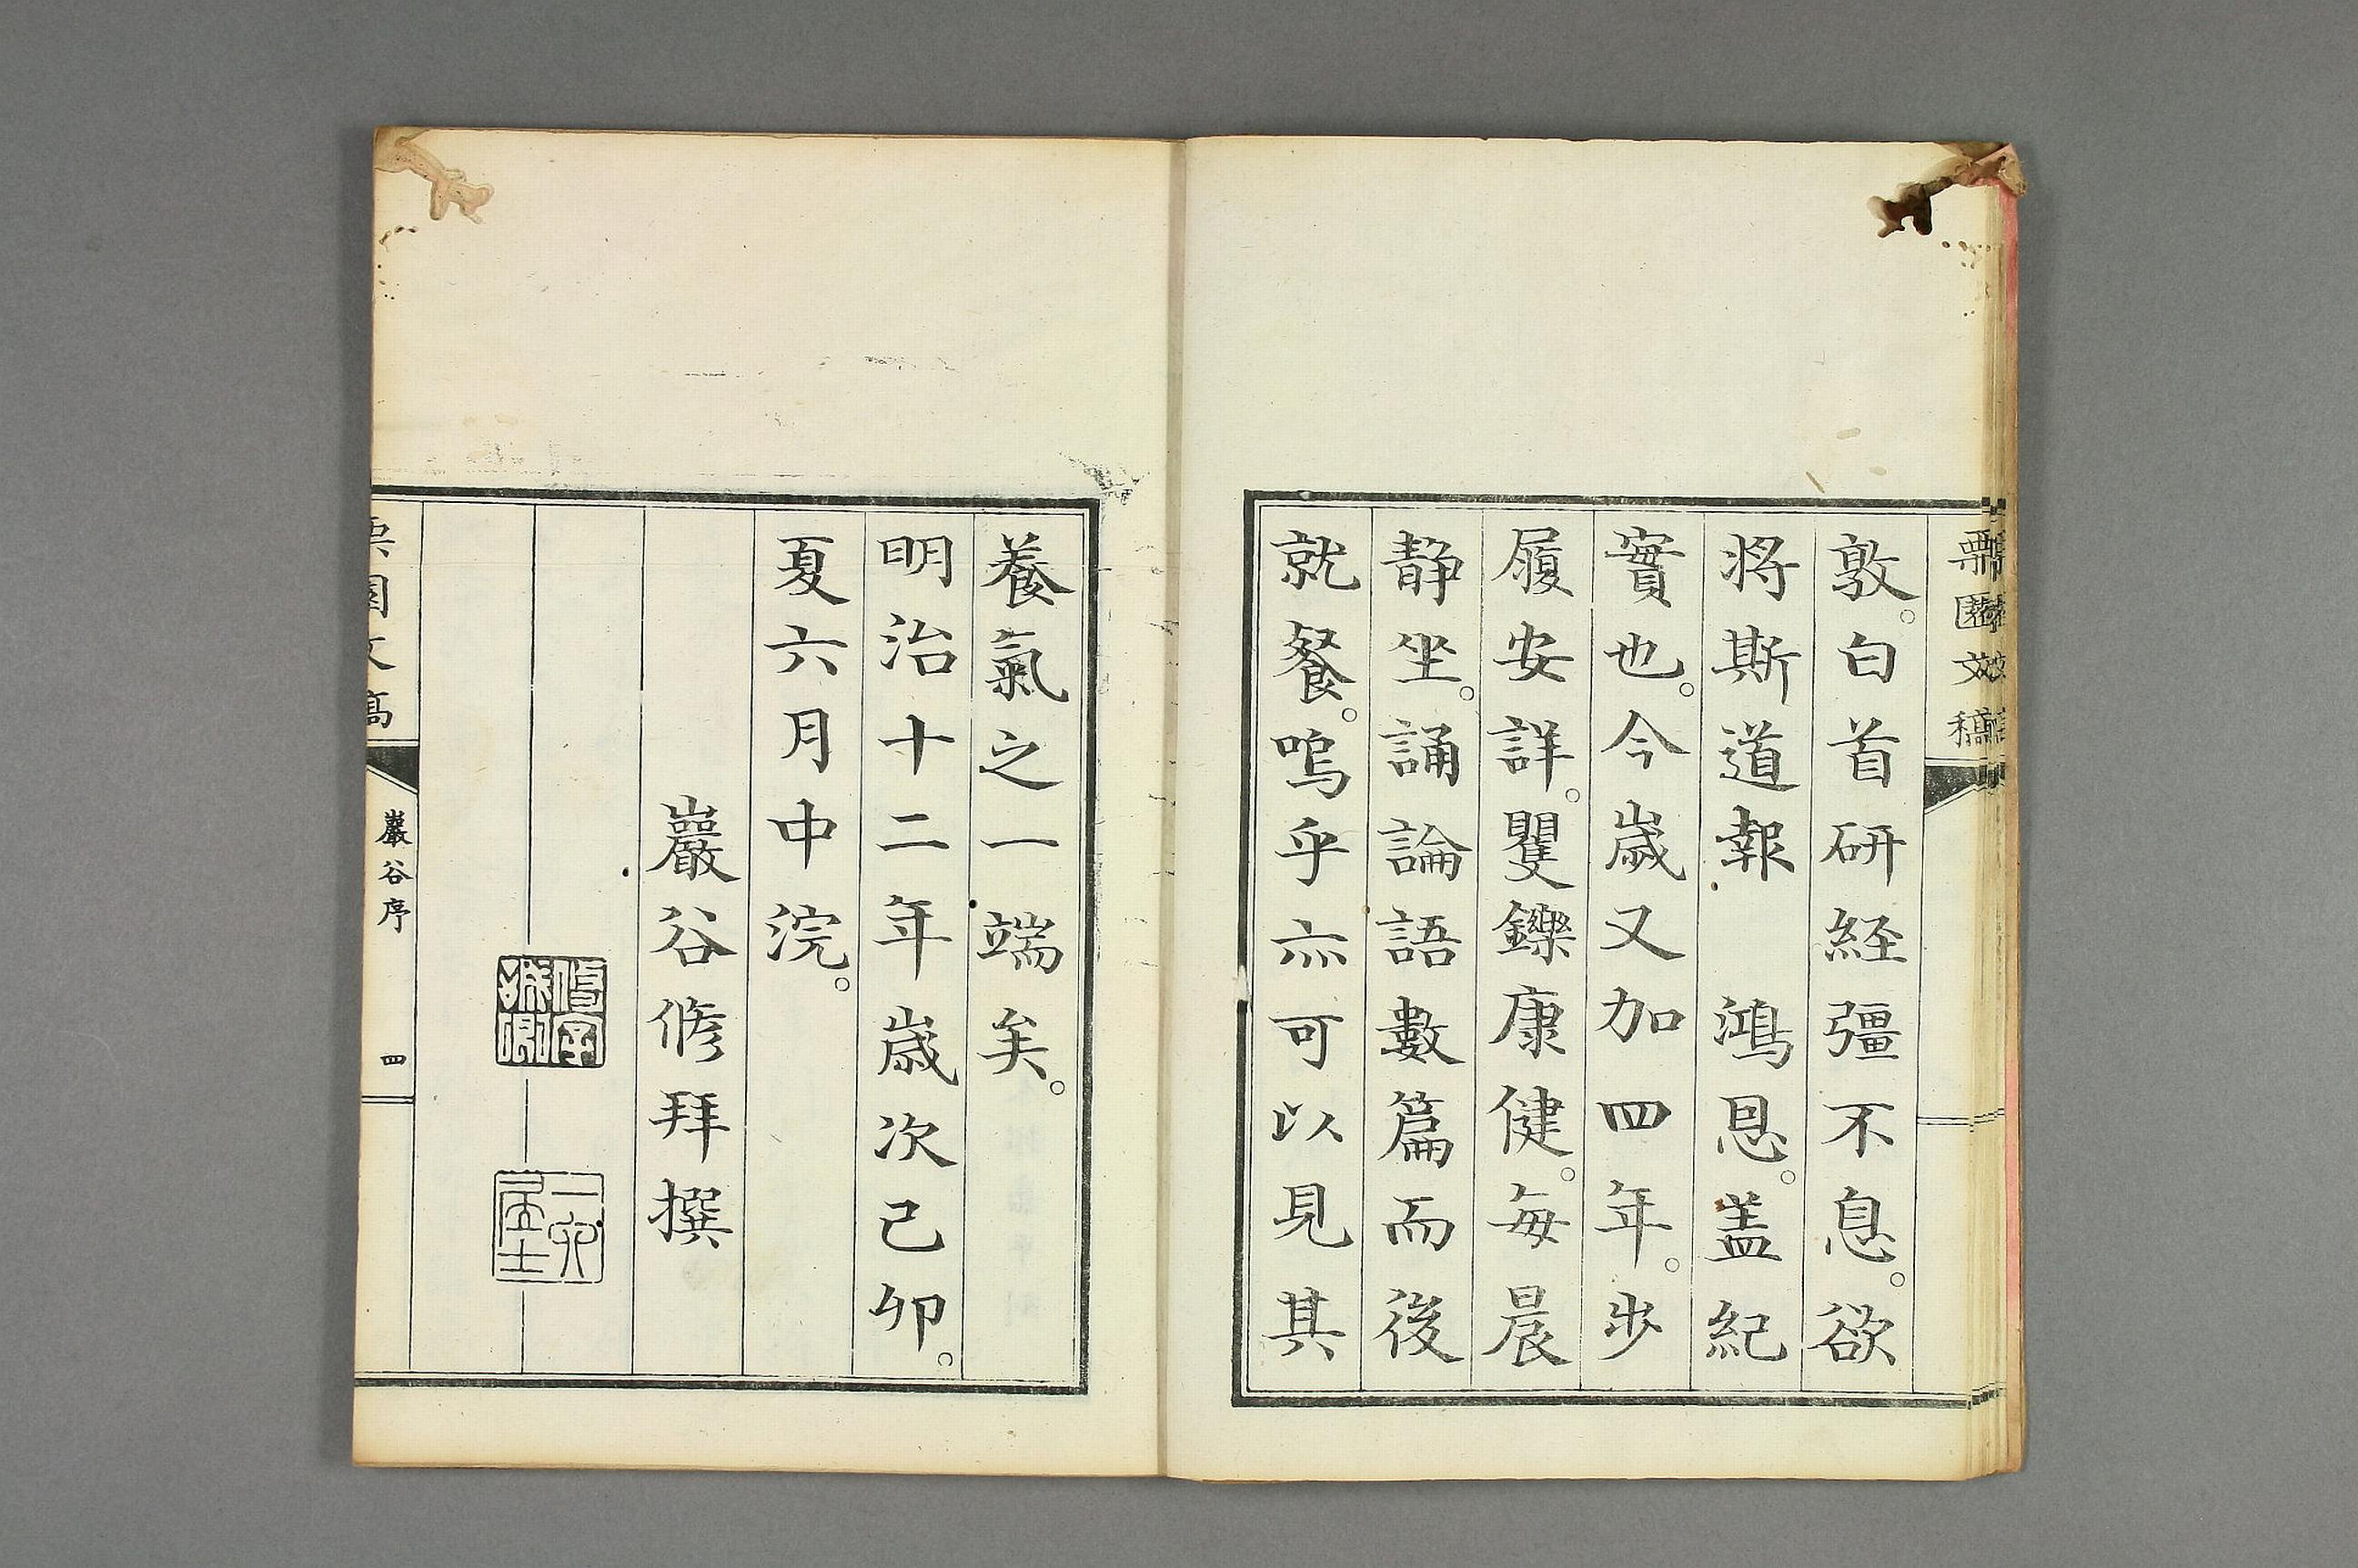 栗園文稿
敦。白首研経彊不息。欲
将斯道報　鴻恩。盖紀
實也。今歲又加四年。步
履安詳。矍鑠康健。每晨
静坐。誦論語數篇而後
就餐。嗚乎亦可以見其
養氣之一端矣。
明治十二年歲次己卯。
夏六月中浣。
巖谷修拜撰
修字
誠卿
一六
居士
栗園文稿
巖谷序
四